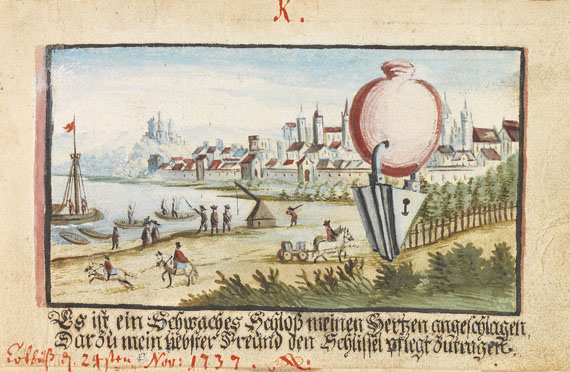 K.
Es ist ein Schwaches Schloß meinen Hertzen angeschlagen,
Dar zu mein liebster Freund den Schlüssel pflegt zutragen.
d. 24sten Nov: 1737.